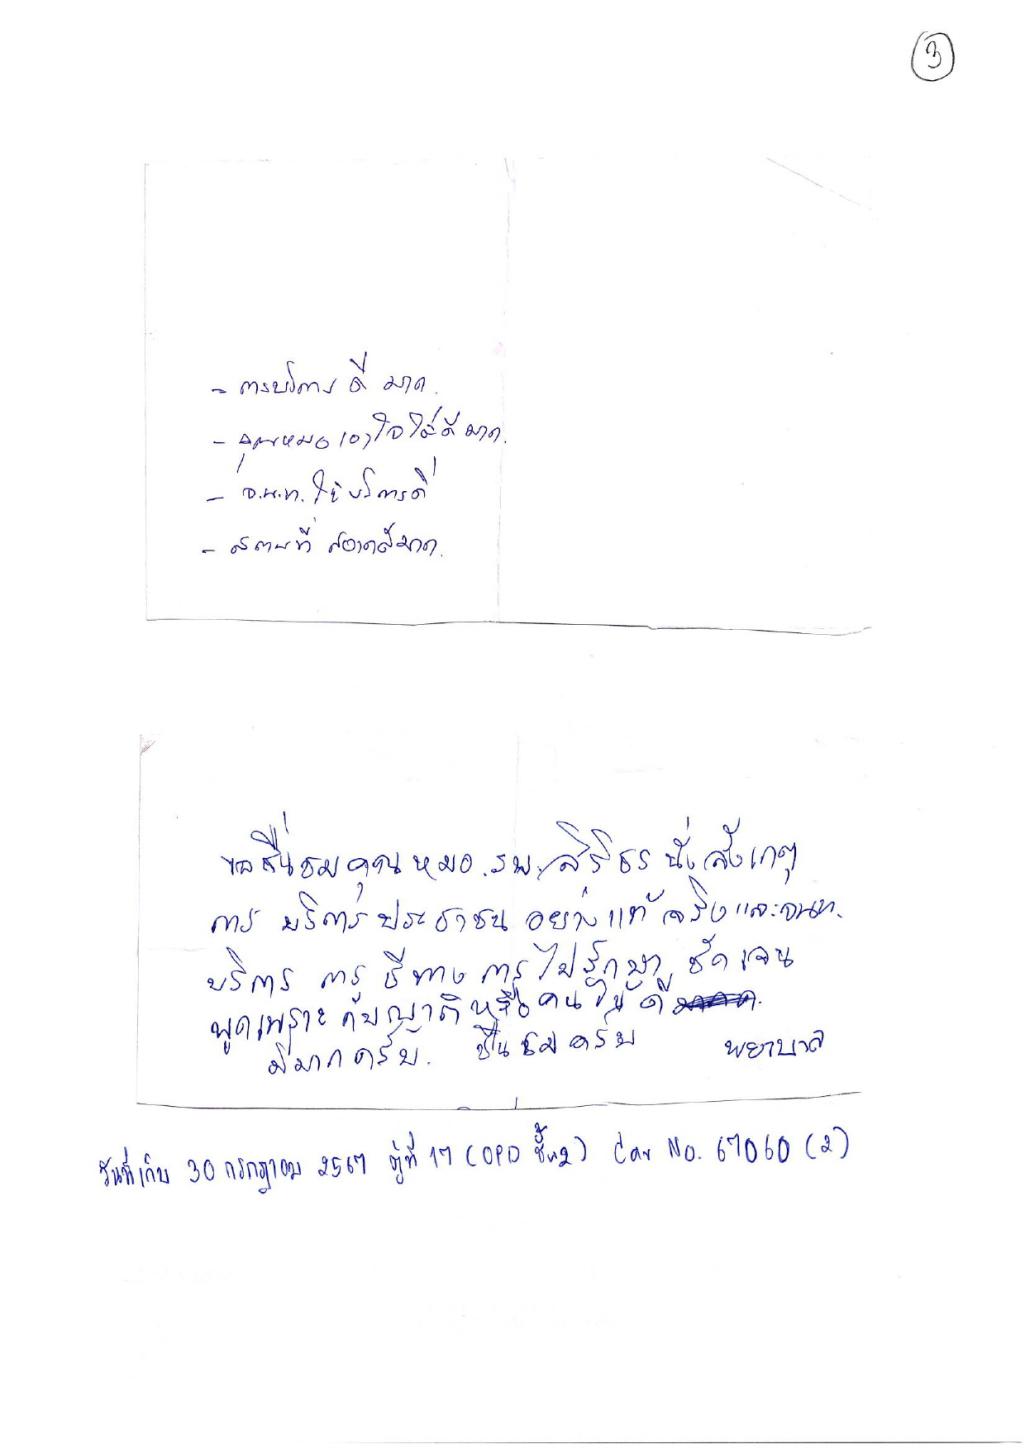 3
- การบริการ ดี มาก.
- คุณหมอเอาใจใส่ดีมาก.
- จ.น.ท. ให้บริการดี
- สถานที่ สะอาดดีมาก.
ขอชื่นชมคุณหมอ.รพ.สิรินธร นั่งสังเกตุ
การ บริการประชาชน อย่างแท้จริงและจนท.
บริการ การ ชี้ทาง การไปรักษา ชัดเจน
พูดเพราะ กับญาติหรือคนไข้ ดี
มีมากครับ. ชื่นชมครับ พยาบาล
วันที่เก็บ 30 กรกฎาคม 2567 ตู้ที่ 17 (OPD ชั้น2) Car No. 67060 (2)